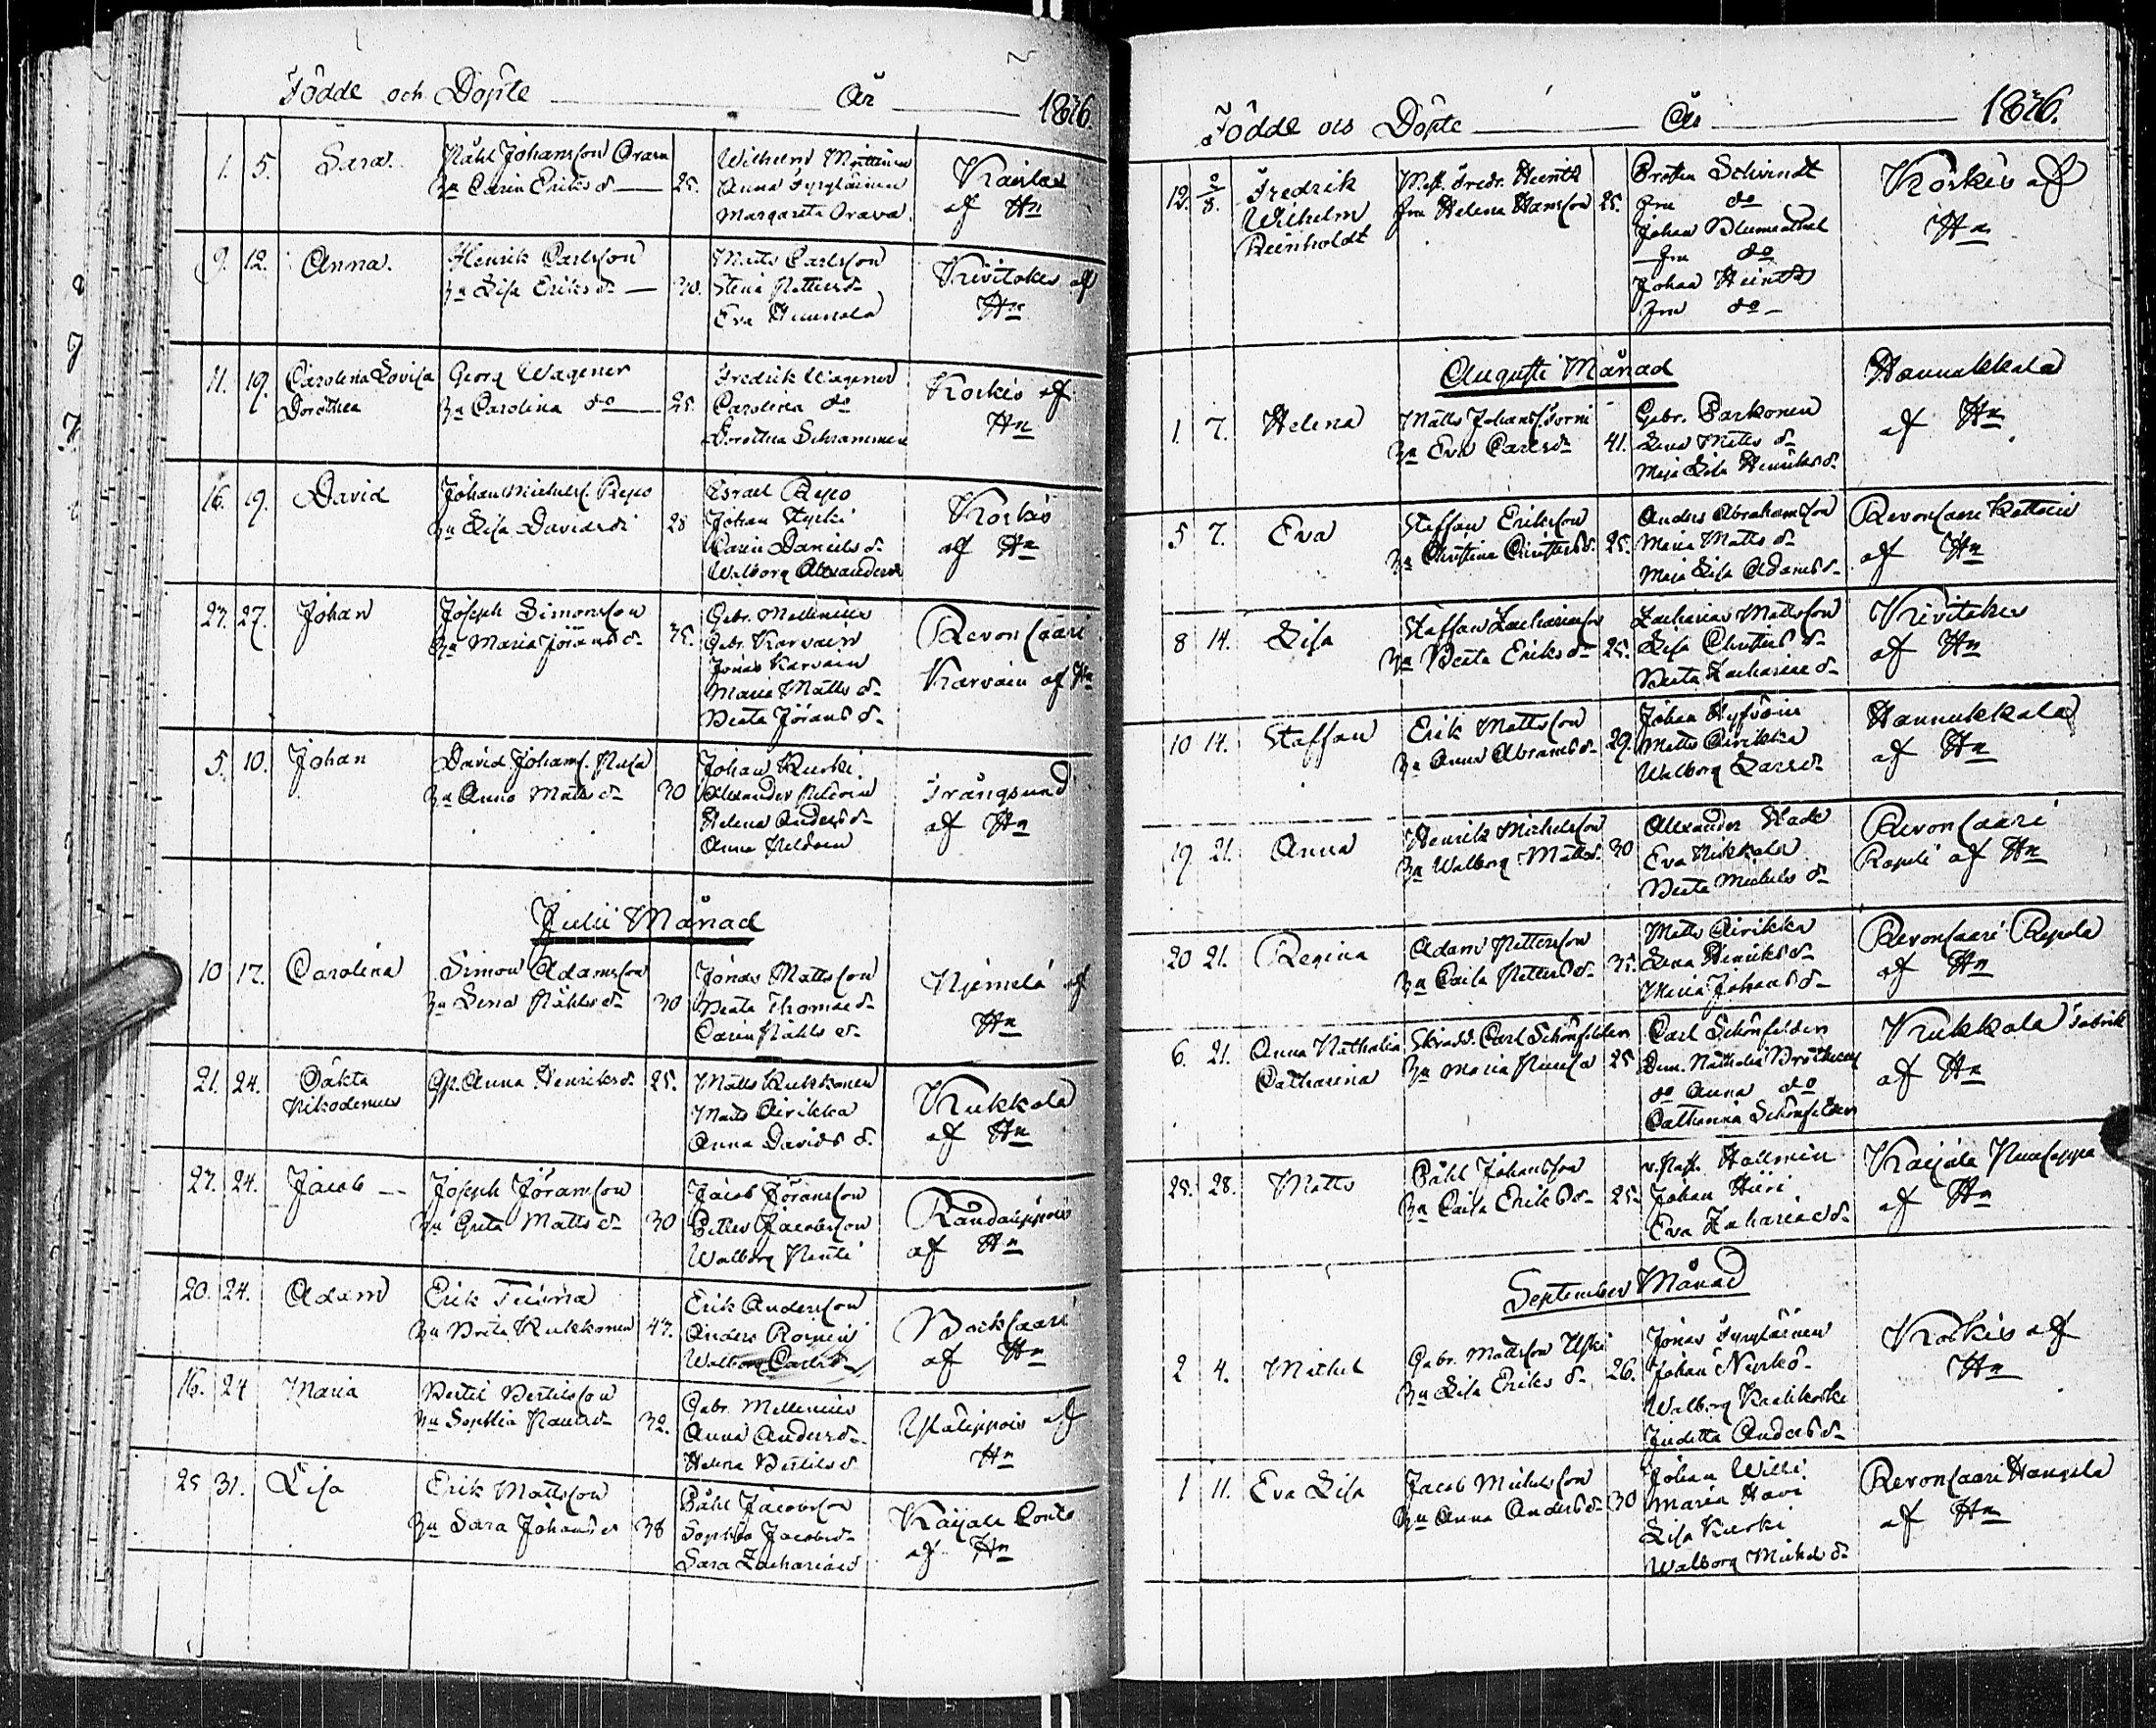 Födde och Döpte År 1826.
1. 5. Sara. Påhl Johansson Orava
hu Carin Eriks dr 25.
Wilhelm Möttinen
Anna Pyryläinen
Margareta Orava
Kaisla
af Hn
9. 12. Anna. Henrik Carlsson
hu Lisa Eriks dr
Matts Carlsson
Stina Petters dr
Eva Hannola
Kivitokes af
Hn
11. 19. Carolina Lovisa
Dorothea
Georg Wagener
hu Carolina do 25.
Fredrik Wagener
Carolina do
Dorothea Schrammen
Koskis af
Hn
16. 19. David Johan Michelss. Repo
hu Lisa Davids dr 28
Israel Repo
Johan Kyrki
Carin Daniels dr
Walborg Alexanders
Koskis
af Hn
27. 27. Johan Joseph Simonsson
hu Maria Jörans dr 35.
Gabr. Mellenius
Gabr. Karvain
Jonas Karvain
Maria Matts dr
Beata Jörans dr
Revonsaari
Karvain af Hn
5. 10. Johan David Johanss. Nusa
hu Anna Matts dr 30
Johan Kurki
Alexander Peldoin
Helena Anders dr
Anna Peldoin
Trångsund
af Hn
Julii Månad
10 17. Carolina Simon Adamsson
hu Lena Påhls dr 30
Jonas Mattsson
Beata Thomae dr
Carin Påhls dr
Niemelä af
Hn
21. 24. Oäkta
Nikodemus
Qp. Anna Henriks dr 25.
Matts Kukkonen
Matts Airikka
Anna Davids dr
Kukkola
af Hn
27. 24. Jacob Joseph Jöransson
hu Greta Matts dr 30
Jacob Jöransson
Petter Jacobsson
Walborg Pentti
Randalippois
af Hn
20. 24. Adam Erik Tuoma
hu Brita Kukkonen 47.
Erik Andersson
Anders Roinein
Walborg Carls dr
Bocksaari
af Hn
16. 24 Maria Bertil Bertilsson
hu Sophia Pauls dr 32.
Gabr. Mellenius
Anna Anders dr
Helena Bertils dr
Ylälippois af
Hn
25 31. Lisa Erik Mattsson
hu Sara Johans dr 38
Påhl Jacobsson
Sophia Jacobs dr
Sara Zacharias dr
Kaijala
af Hn
Födde och Döpte År 1826.
12. 2/8. Fredrik
Wilhelm
Reinholdt
Mast. Fredr. Heintz
fru Helena Hansson 25.
Schvindt
fru do
Johan Blumenthal
fru do
Johan Heintz
fru do
Koskis af
Hn
Augusti Månad
1. 7. Helena Matts Johanss. Torni
hu Eva Carls dr 41.
Gabr. Parkonen
Lena Matts dr
Maja Lisa Henriks dr
Hannukkala
af Hn
5 7. Eva Staffan Eriksson
hu Christina Christers dr 25.
Anders Abrahamsson
Maria Matts dr
Maja Lisa Adams dr
Revonsaari Kattain
af Hn
8 14. Lisa Staffan Zachariasson
hu Beata Eriks dr 25.
Zacharias Mattsson
Lisa Christers dr
Beata Zacharias dr
Kivitokes
af Hn
10 14. Staffan Erik Mattsson
hu Anna Abrams dr 29.
Johan Hyvöin
Matts Airikka
Walborg Lars dr
Hannukkala
af Hn
19 21. Anna Henrik Michelsson
hu Walborg Matts dr 30
Alexander Stade
Eva Nikkala
Beata Michels dr
Revonsaari
Rapeli af Hn
20 21. Regina Adam Pettersson
hu Caisa Petters dr 35.
Matts Airikka
Lena Henriks dr
Maria Johans dr
Revonsaari Repola
af Hn
6. 21. Anna Nathalia
Catharina
Skradd. Carl Schönfelder
hu Maria Nuusa 25
Carl Schönfelder
Dem. Nathalia
do Anna do
Catharina Schönfelder
Kukkola fabrik
af Hn
25. 28. Matts Påhl Johansson
hu Caisa Eriks dr 25.
Hallmin
Johan Huri
Eva Zacharias dr
Kaijala
af Hn
September Månad
2 4. Michel Gabr. Mattsson Uski
hu Lisa Eriks dr 26.
Jonas Pyryläinen
Johan Nurko
Walborg Kaalikoski
Juditta Anders dr
Koskis af
Hn
1 11. Eva Lisa Jacob Michelsson
hu Anna Anders dr 30
Johan Willi
Maria Havi
Lisa Kurki
Walborg Michels dr
Revonsaari Hangela
af Hn